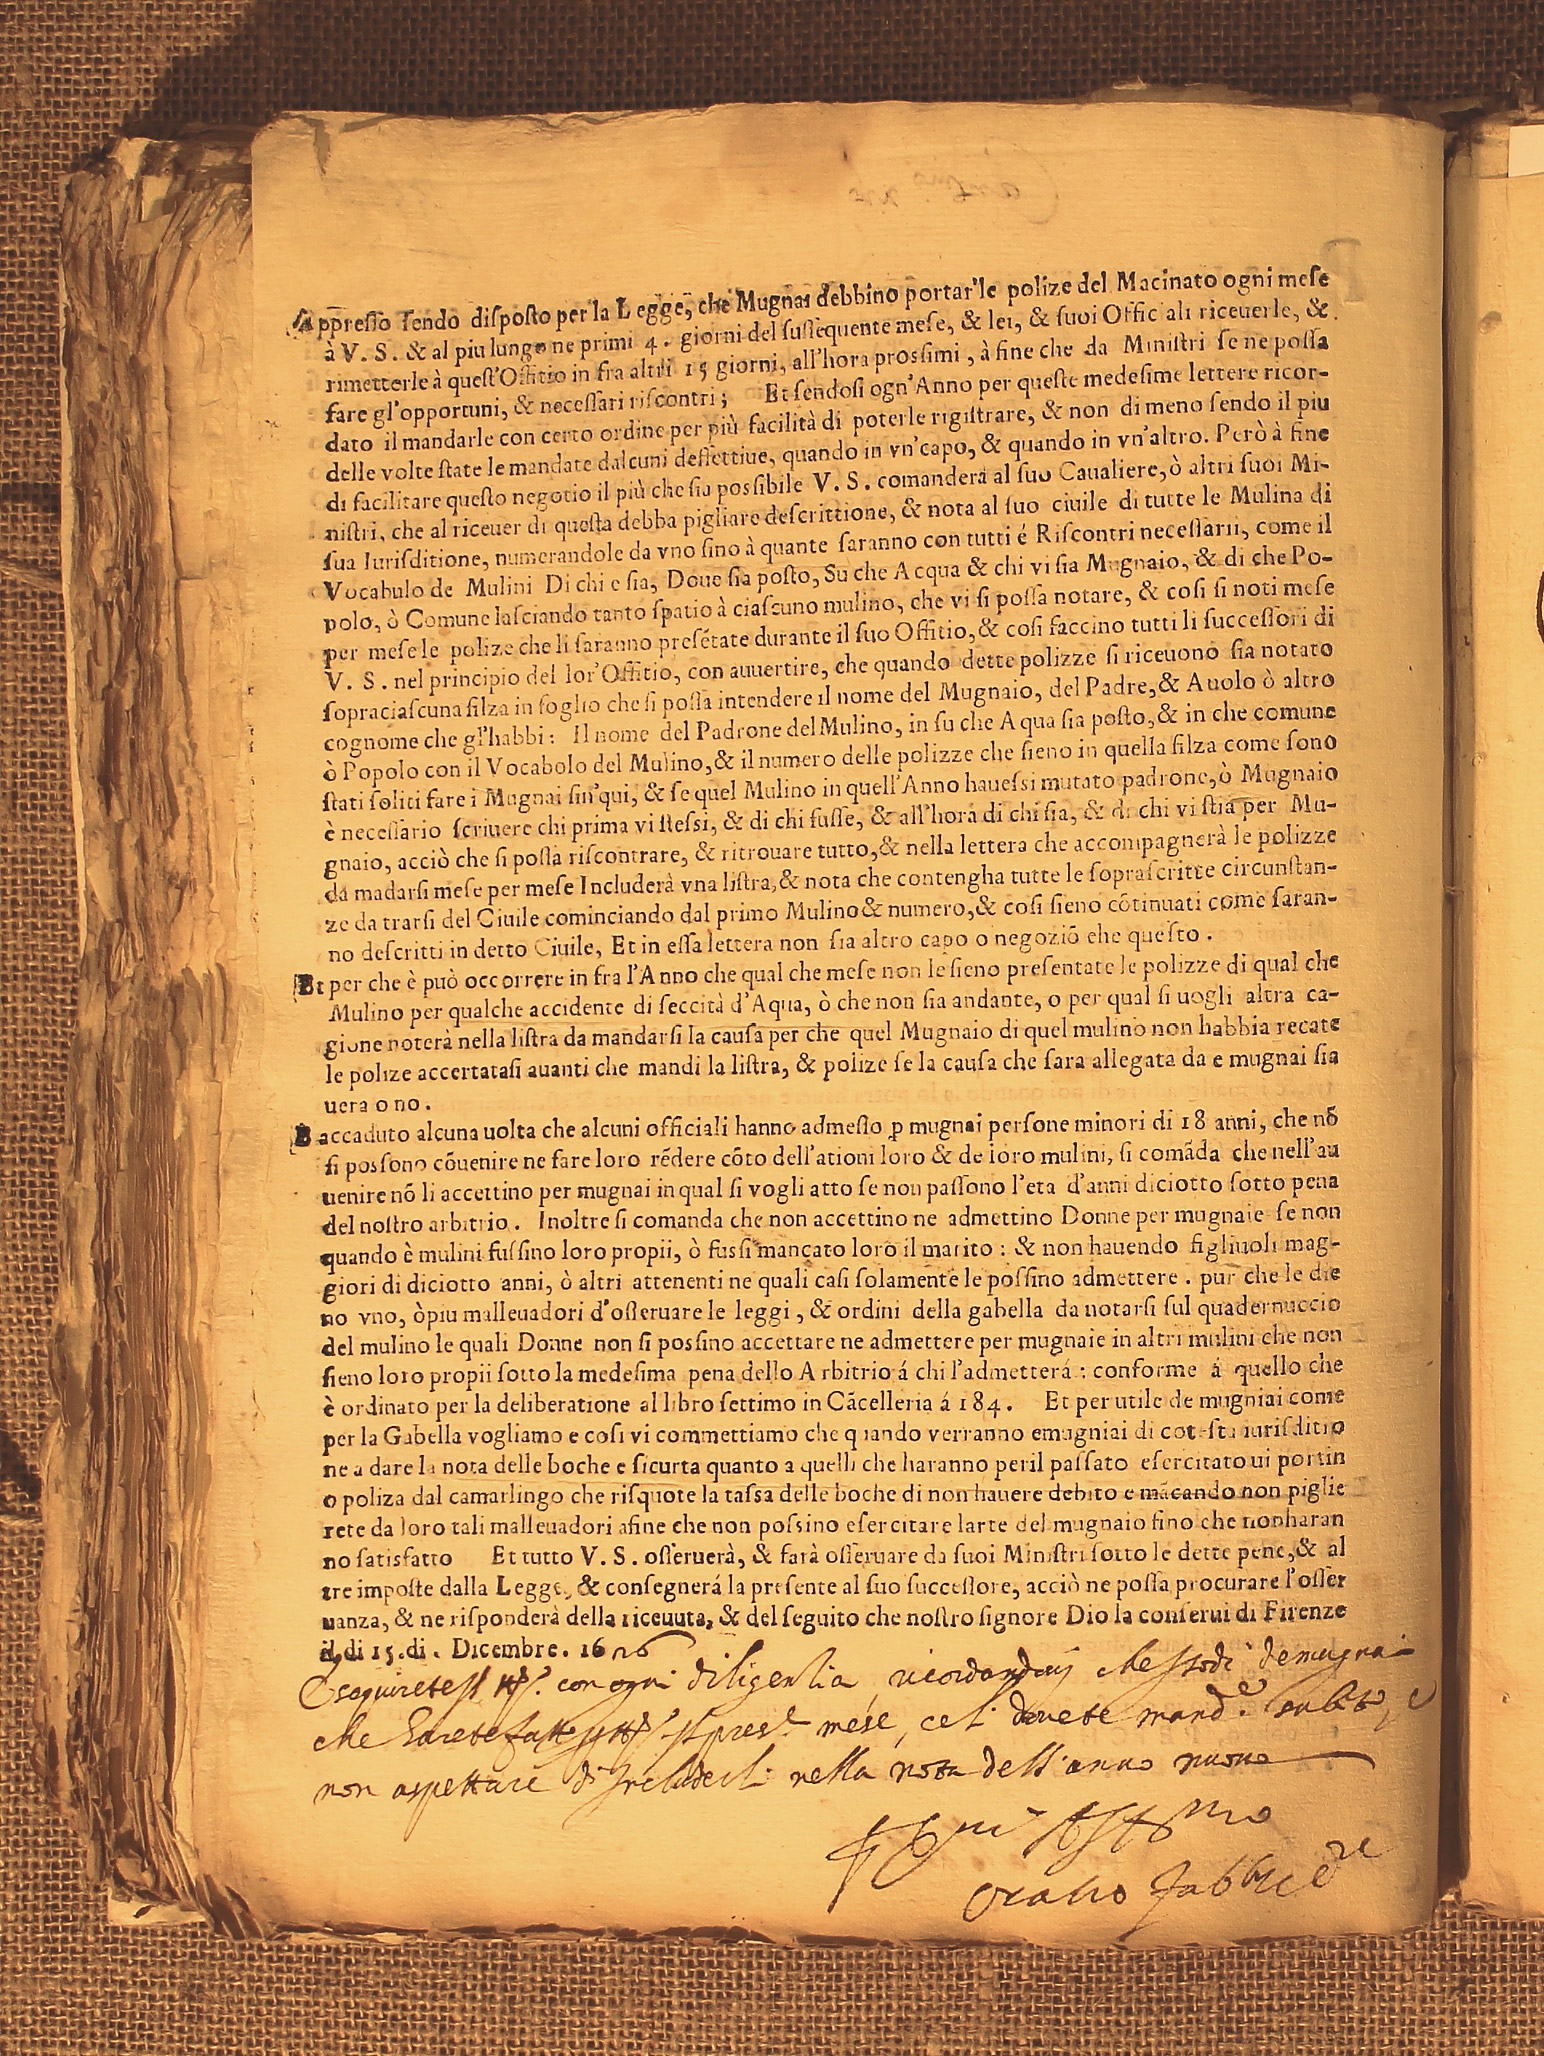 Appresso sendo disposto per la Legge, che Mugnai debbino portar'le polize del Macinato ogni mese
à V. S. & al piu lungo ne primi 4. giorni del sussequente mese, & lei, & suoi Officiali riceuerle, &
rimetterle à quest'Offitio in fra altri 15 giorni, all'hora prossimi, à fine che da Ministri se ne possa
fare gl'opportuni, & necessari riscontri; Et sendosi ogn'Anno per queste medesime lettere ricor-
dato il mandarle con certo ordine per più facilità di poterle rigistrare, & non di meno sendo il piu
delle volte state le mandate dalcuni deffettiue, quando in vn'capo, & quando in vn'altro. Però à fine
di facilitare questo negotio il più che sia possibile V. S. comanderà al suo Caualiere, ò altri suoi Mi-
nistri, che al riceuer di questa debba pigliare descrittione, & nota al suo ciuile di tutte le Mulina di
sua Iurisditione, numerandole da vno sino à quante saranno con tutti é Riscontri necessarii, come il
Vocabulo de Mulini Di chi e sia, Doue sia posto, Su che Acqua & chi vi sia Mugnaio, & di che Po-
polo, ò Comune lasciando tanto spatio à ciascuno mulino, che vi si possa notare, & cosi si noti mese
per mese le polize che li saranno presétate durante il suo Offitio, & cosi faccino tutti li successori di
V. S. nel principio del lor'Offitio, con auuertire, che quando dette polizze si riceuono sia notato
sopra ciascuna filza in foglio che si possa intendere il nome del Mugnaio, del Padre, & Auolo ò altro
cognome che gl'habbi: Il nome del Padrone del Mulino, in su che Aqua sia posto, & in che comune
ò Popolo con il Vocabolo del Mulino, & il numero delle polizze che sieno in quella filza come sono
stati soliti fare i Mugnai sin'qui, & se quel Mulino in quell'Anno hauessi mutato padrone, ò Mugnaio
è necessario scriuere chi prima vi stessi, & di chi fusse, & all'hora di chi sia, & di chi vi stia per Mu-
gnaio, acciò che si possa riscontrare, & ritrouare tutto, & nella lettera che accompagnerà le polizze
da madarsi mese per mese Includerà vna listra, & nota che contengha tutte le soprascritte circunstan-
ze da trarsi del Ciuile cominciando dal primo Mulino & numero, & cosi sieno cõtinuati come saran-
no descritti in detto Ciuile, Et in essa lettera non sia altro capo o negoziõ che questo.
Et per che è può occorrere in fra l'Anno che qual che mese non le sieno presentate le polizze di qual che
Mulino per qualche accidente di seccità d'Aqua, ò che non sia andante, o per qual si uogli altra ca-
gione noterà nella listra da mandarsi la causa per che quel Mugnaio di quel mulino non habbia recate
le polize accertatasi auanti che mandi la listra, & polize se la causa che sara allegata da e mugnai sia
uera o no.
E accaduto alcuna uolta che alcuni officiali hanno admesso ꝑ mugnai persone minori di 18 anni, che nõ
si possono cõuenire ne fare loro rẽdere cõto dell'ationi loro & de loro mulini, si comãda che nell'au
uenire nõ li accettino per mugnai in qual si vogli atto se non passono l'eta d'anni diciotto sotto pena
del nostro arbitrio. Inoltre si comanda che non accettino ne admettino Donne per mugnaie se non
quando è mulini fussino loro propii, ò fussi mancato loro il marito: & non hauendo figliuoli mag-
giori di diciotto anni, ò altri attenenti ne quali casi solamente le possino admettere. pur che le die
no vno, ò piu malleuadori d'osseruare le leggi, & ordini della gabella da notarsi sul quadernuccio
del mulino le quali Donne non si possino accettare ne admettere per mugnaie in altri mulini che non
sieno loro propii sotto la medesima pena dello Arbitrio á chi l'admetterá: conforme á quello che
è ordinato per la deliberatione al libro settimo in Cãcelleria á 184. Et per utile de mugniai come
per la Gabella vogliamo e cosi vi commettiamo che quando verranno emugniai di cotesta iurisditio
ne a dare la nota delle boche e sicurta quanto a quelli che haranno peril passato esercitato ui portin
o poliza dal camarlingo che risquote la tassa delle boche di non hauere debito e mãcando non piglie
rete da loro tali malleuadori afine che non possino esercitare larte del mugnaio fino che nonharan
no satisfatto Et tutto V. S. osseruerà, & farà osseruare da suoi Ministri sotto le dette pene, & al
tre imposte dalla Legge, & consegnerá la presente al suo successore, acciò ne possa procurare l'osser
uanza, & ne risponderà della riceuuta, & del seguito che nostro signore Dio la conserui di Firenze
il di 15. di. Dicembre. 1626
con ogni diligentia ricordandoui demugnai
che mese, deuete mand.e subito, e
non aspettare di Includerli nella nota dell'anno nuouo
Oratio